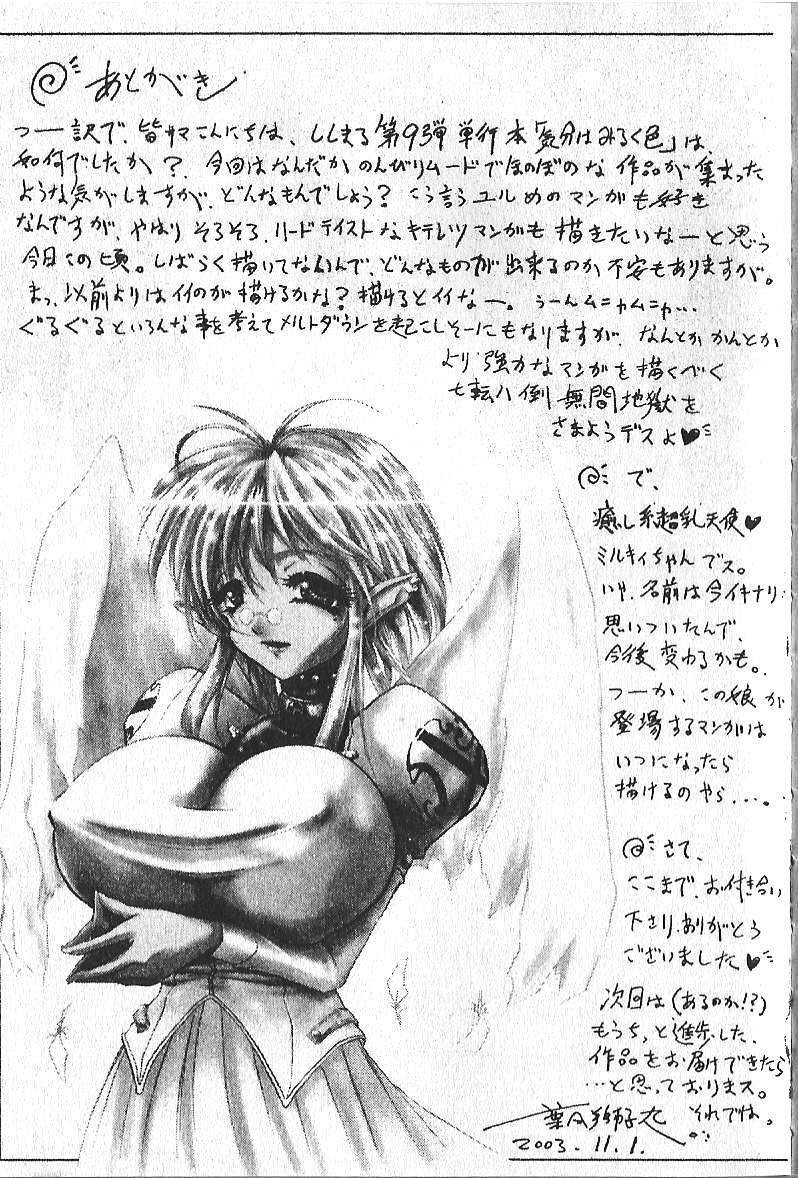 あとがき
つー訳で、皆サマこんにちは、ししまる第9弾単行本「気分はみるく色」は、
如何でしたか？、今回はなんだかのんびりムードでほのぼのな作品が集まった
ような気がしますが、どんなもんでしょう？こう言うユルめのマンガも好き
なんですが、やはりそろそろ、ハードテイストなキテレツマンガも描きたいなーと思う
今日この頃。しばらく描いてないんで、どんなものが出来るのか不安もありますが。
まっ、以前よりはイイのが描けるかな？描けるとイイなー。うーんムニャムニャ…
ぐるぐるといろんな事を考えてメルトダウンを起こしそーにもなりますが、なんとかかんとか
より強力なマンガを描くべく
七転八倒無間地獄を
さまようデスよ♥
で、
癒し系超乳天使♥
ミルキィちゃんでス。
いや、名前は今イキナリ
思いついたんで、
今後変わるかも。
つーか、この娘が
登場するマンガは
いつになったら
描けるのやら…。
さて、
ここまで、お付き合い
下さり、ありがとう
ございました♥
次回は(あるのか!?)
もうちっと進歩した、
作品をお届けできたら
…と思っておりまス。
それでは。
2003.11.1.